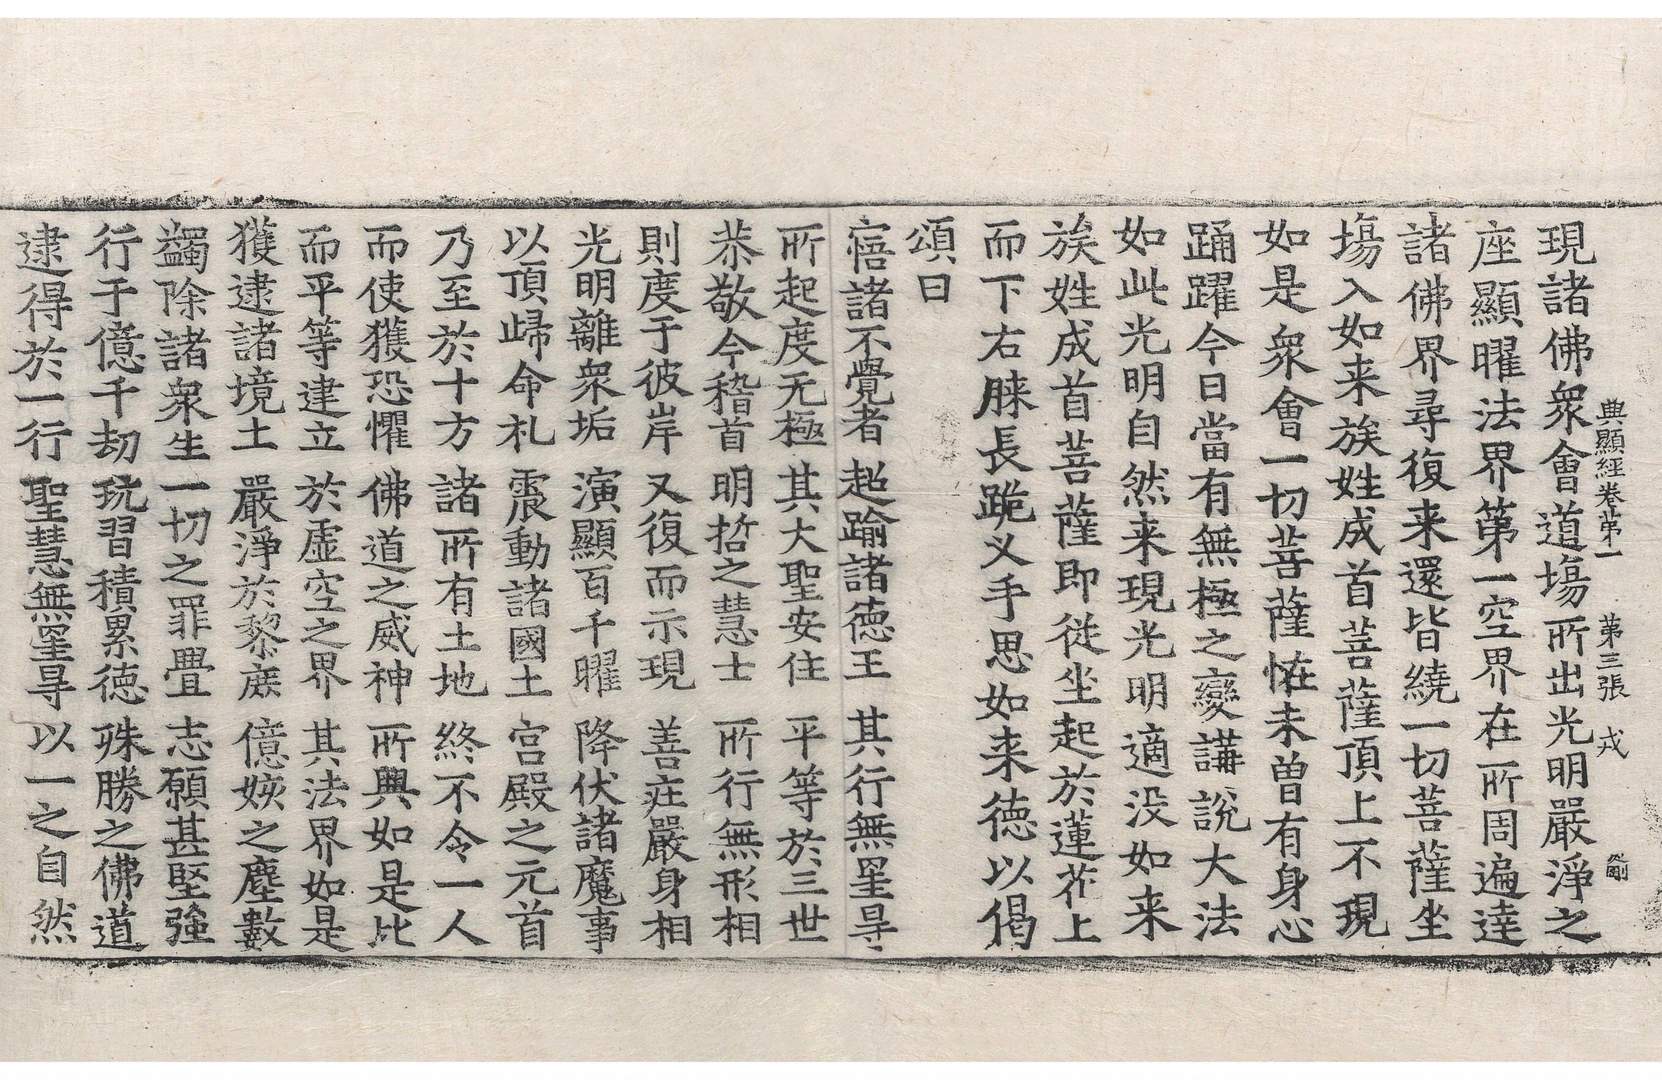 興顯經卷第一　第三張　戎
剛
現諸佛衆會道塲所出光明嚴淨之
座顯曜法界第一空界在所周遍達
諸佛界尋復来還皆繞一切菩薩坐
塲入如来族姓成首菩薩頂上不現
如是衆會一切菩薩恠未曾有身心
踊躍今日當有無極之變講說大法
如此光明自然来現光明適没如来
族姓成首菩薩即從坐起於蓮花上
而下右膝長跪叉手思如来德以偈
頌曰
寤諸不覺者　超踰諸德王　其行無罣㝵
所起度无極　其大聖安住　平等於三世
恭敬今稽首　明哲之慧士　所行無形相
則度于彼岸　又復而示現　善莊嚴身相
光明離衆垢　演顯百千曜　降伏諸魔事
以頂歸命礼　震動諸國土　宫殿之元首
乃至於十方　諸所有土地　終不令一人
而使獲恐懼　佛道之威神　所興如是比
而平等建立　於虚空之界　其法界如是
獲逮諸境土　嚴淨於黎庶　億姟之塵數
蠲除諸衆生　一切之罪疊　志願甚堅強
行于億千劫　玩習積累德　殊勝之佛道
逮得於一行　聖慧無罣㝵　以一之自然